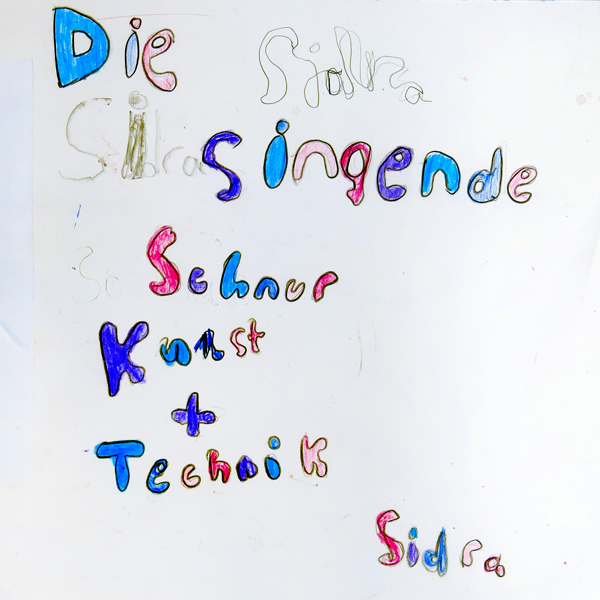 Die
Sidra
singende
Schnur
Kunst
+
Technik
Sidra